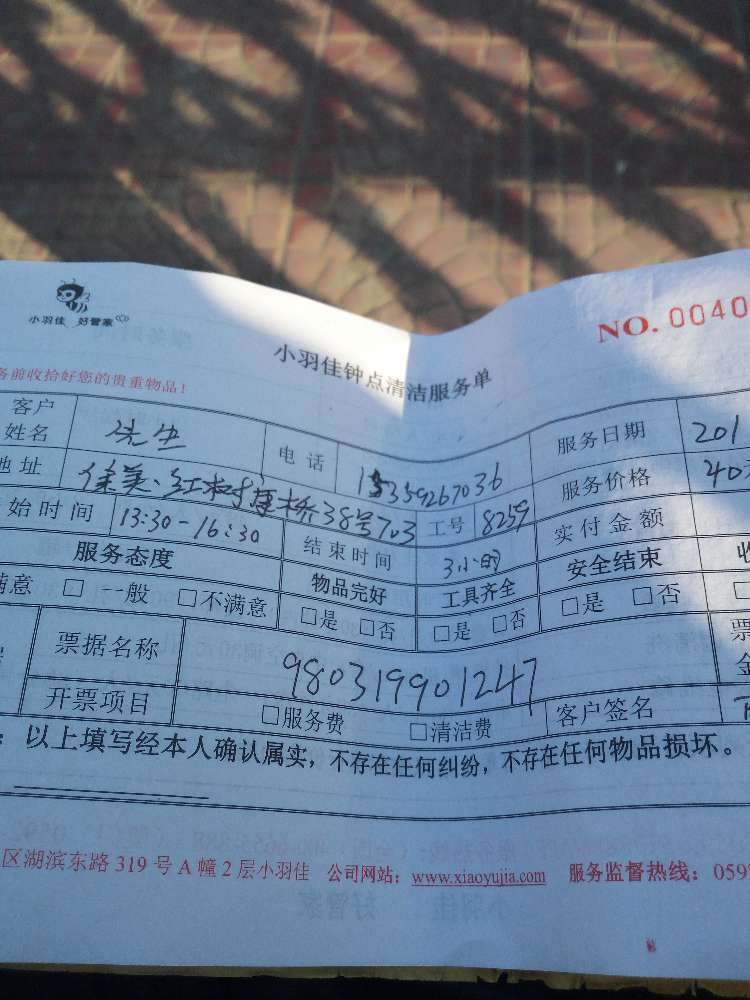 小羽佳 好管家
NO. 0040
小羽佳钟点清洁服务单
务前收拾好您的贵重物品！
客户姓名 先生 电话 15359267036 服务日期 201
地址 38号703 工号 8259 服务价格 40
始时间 13:30-16:30 结束时间 3小时 实付金额
服务态度 物品完好 工具齐全 安全结束
满意 □ 一般 □不满意 □是 □否 □是 □否 □是 □否
票据名称 980319901247 票
开票项目 □服务费 □清洁费 客户签名
：以上填写经本人确认属实，不存在任何纠纷，不存在任何物品损坏。
区湖滨东路 319 号 A 幢 2 层小羽佳 公司网站：www.xiaoyujia.com 服务监督热线：059